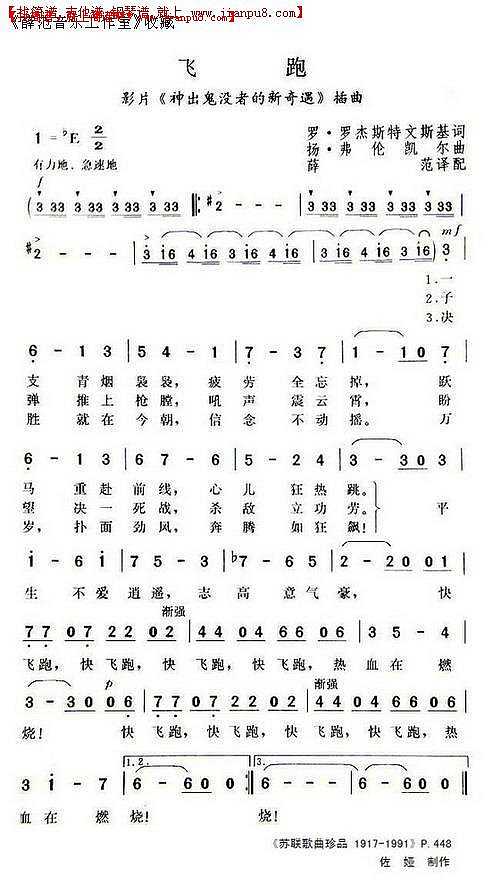 【非管通,吉他谱,钢琴谱 就上 www.jitanpu8.com】
《薛范音乐工作室》收藏
飞 跑
影片《神出鬼没者的新奇遇》插曲
1=♭E 2/2
罗·罗杰斯特文斯基词
扬·弗伦凯尔曲
薛 范译配
有力地、急速地
f
( 3 33 3 33 3 33 3 33 ‖: #2 - - 0 | 3 33 3 33 3 33 3 33
#2 - - - | 3 i6 4 i6 3 i6 4 i6 | 3 i6 4 i6 3 i6 ) 3
mf
1.一
2.子
3.决
6 - 1 3 | 5 4 - 1 | 7 - 3 7 | 1 - - - | 1 0 7
支 青 烟 袅 袅, 疲 劳 全 忘 掉, 跃
弹 推 上 枪 膛, 吼 声 震 云 宵, 盼
胜 就 在 今 朝, 信 念 不 动 摇。 万
6 - 1 3 | 6 7 - 6 | 6 - 5 4 | 3 - - - | 3 0 3
马 重 赴 前 线, 心 儿 狂 热 跳。
望 决 一 死 战, 杀 敌 立 功 劳。 平
岁, 扑 面 劲 风, 奔 腾 如 狂 飙!
i - 6 i | 7 5 - 3 | ♭7 - 6 5 | 2 - - - | 2 0 0 1
生 不 爱 逍 遥, 志 高 意 气 豪, 快
渐强
7 7 0 7 2 2 0 2 | 4 4 0 4 6 6 0 6 | 3 5 - 4
飞跑, 快飞跑, 快飞跑, 快飞跑, 热 血 在 燃
p 渐强
3 - - - | 3 0 0 0 6 | 7 7 0 7 2 2 0 2 | 4 4 0 4 6 6 0 6
烧! 快飞跑, 快飞跑, 快飞跑, 快飞跑, 热
1.2. 3.
3 1 - 7 | 6 - - - | 6 0 0 :‖ 6 - - - | 6 0 0 ‖
血 在 燃 烧! 烧!
《苏联歌曲珍品 1917-1991》P.448
佐 娅 制作